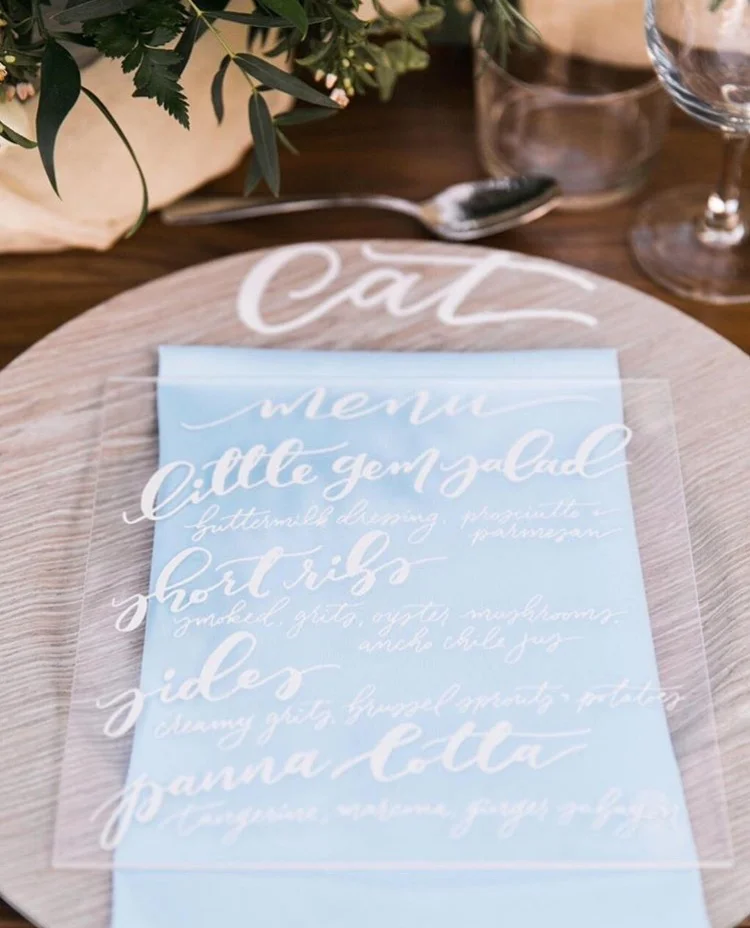 Cat
menu
little gem salad
buttermilk dressing, prosciutto +
parmesan
short ribs
smoked, grits, oyster mushrooms,
ancho chile jus
sides
creamy grits, brussel sprouts + potatoes
panna cotta
tangerine, ginger